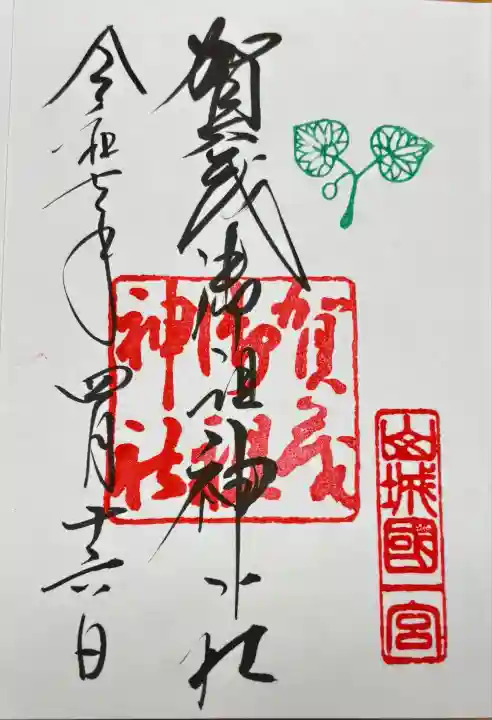 山城國一宮
賀茂御祖神社
賀茂
御祖
神社
令和七年四月十六日